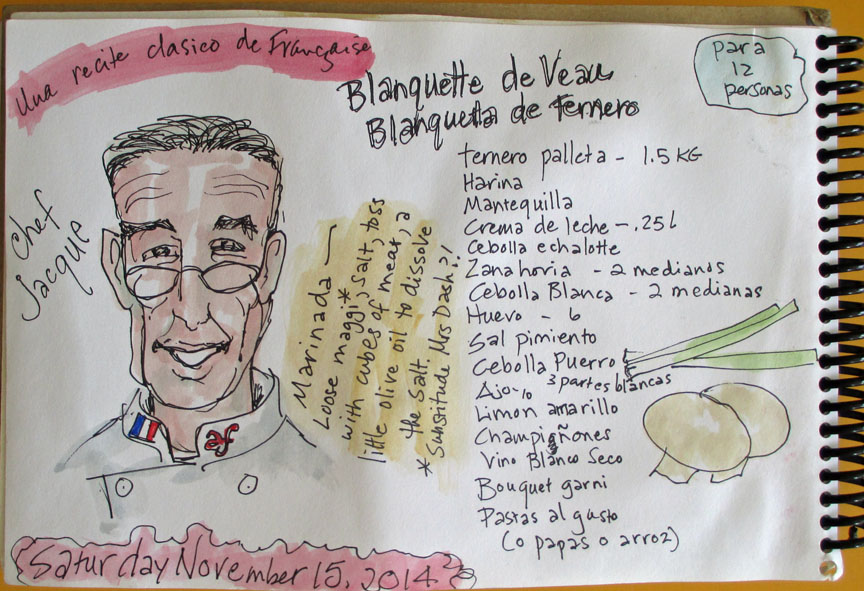 Una recite clasico de Française
Blanquette de Veau
Blanquetta de Ternero
para
12
personas
Chef
Jacque
Ternero palleta - 1.5 KG
Harina
Mantequilla
Crema de leche - .25 l
Cebolla echalotte
Zanahoria - 2 medianos
Cebolla Blanca - 2 medianas
Huevo - 6
Sal pimiento
Cebolla Puerro
3 partes blancas
Ajo - 10
Limon amarillo
Champigñones
Vino Blanco Seco
Bouquet garni
Pastas al gusto
(o papas o arroz)
Marinada —
Loose maggi*, salt, toss
with cubes of meat, a
little olive oil to dissolve
the salt.
*Substitude Mrs Dash?!
af
Saturday November 15, 2014